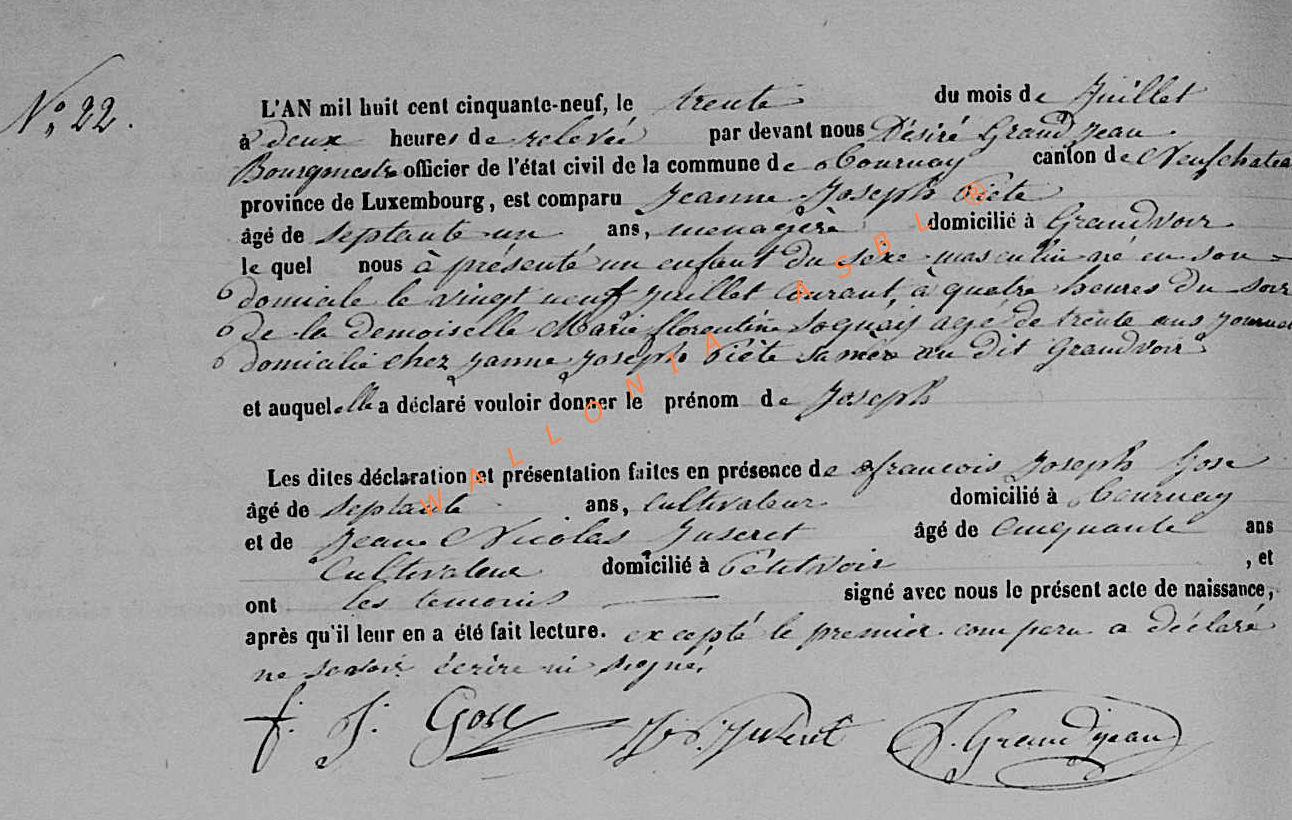 N° 22.
L'AN mil huit cent cinquante-neuf, le trente du mois de Juillet
à deux heures de relevée par devant nous Désiré Grandjean
Bourgmestre officier de l'état civil de la commune de Tournay canton de Neufchatea
province de Luxembourg, est comparu Jeanne Joseph Piète
âgé de septante un ans, menagère domicilié à Grandvoir
le quel nous à présenté un enfant du sexe masculin né en son
domicile le vingt neuf juillet courant, à quatre heures du soir
de la demoiselle Marie florentine agé de trente ans
domicilié chez janne joseph Piète sa mère au dit grandvoir
et auquel elle a déclaré vouloir donner le prénom de Joseph
Les dites déclaration et présentation faites en présence de françois Joseph Gose
âgé de septante ans, Cultivateur domicilié à Tournay
et de Jean Nicolas Juseret âgé de Cinquante ans
Cultivateur domicilié à Petitvoir, et
ont les temoins signé avec nous le présent acte de naissance,
après qu'il leur en a été fait lecture. excepté le premier comparu a déclaré
ne savoir écrire ni signé,
f. J. Gose J. N. Juseret D. Grandjean
WALLONIA ASBL ®